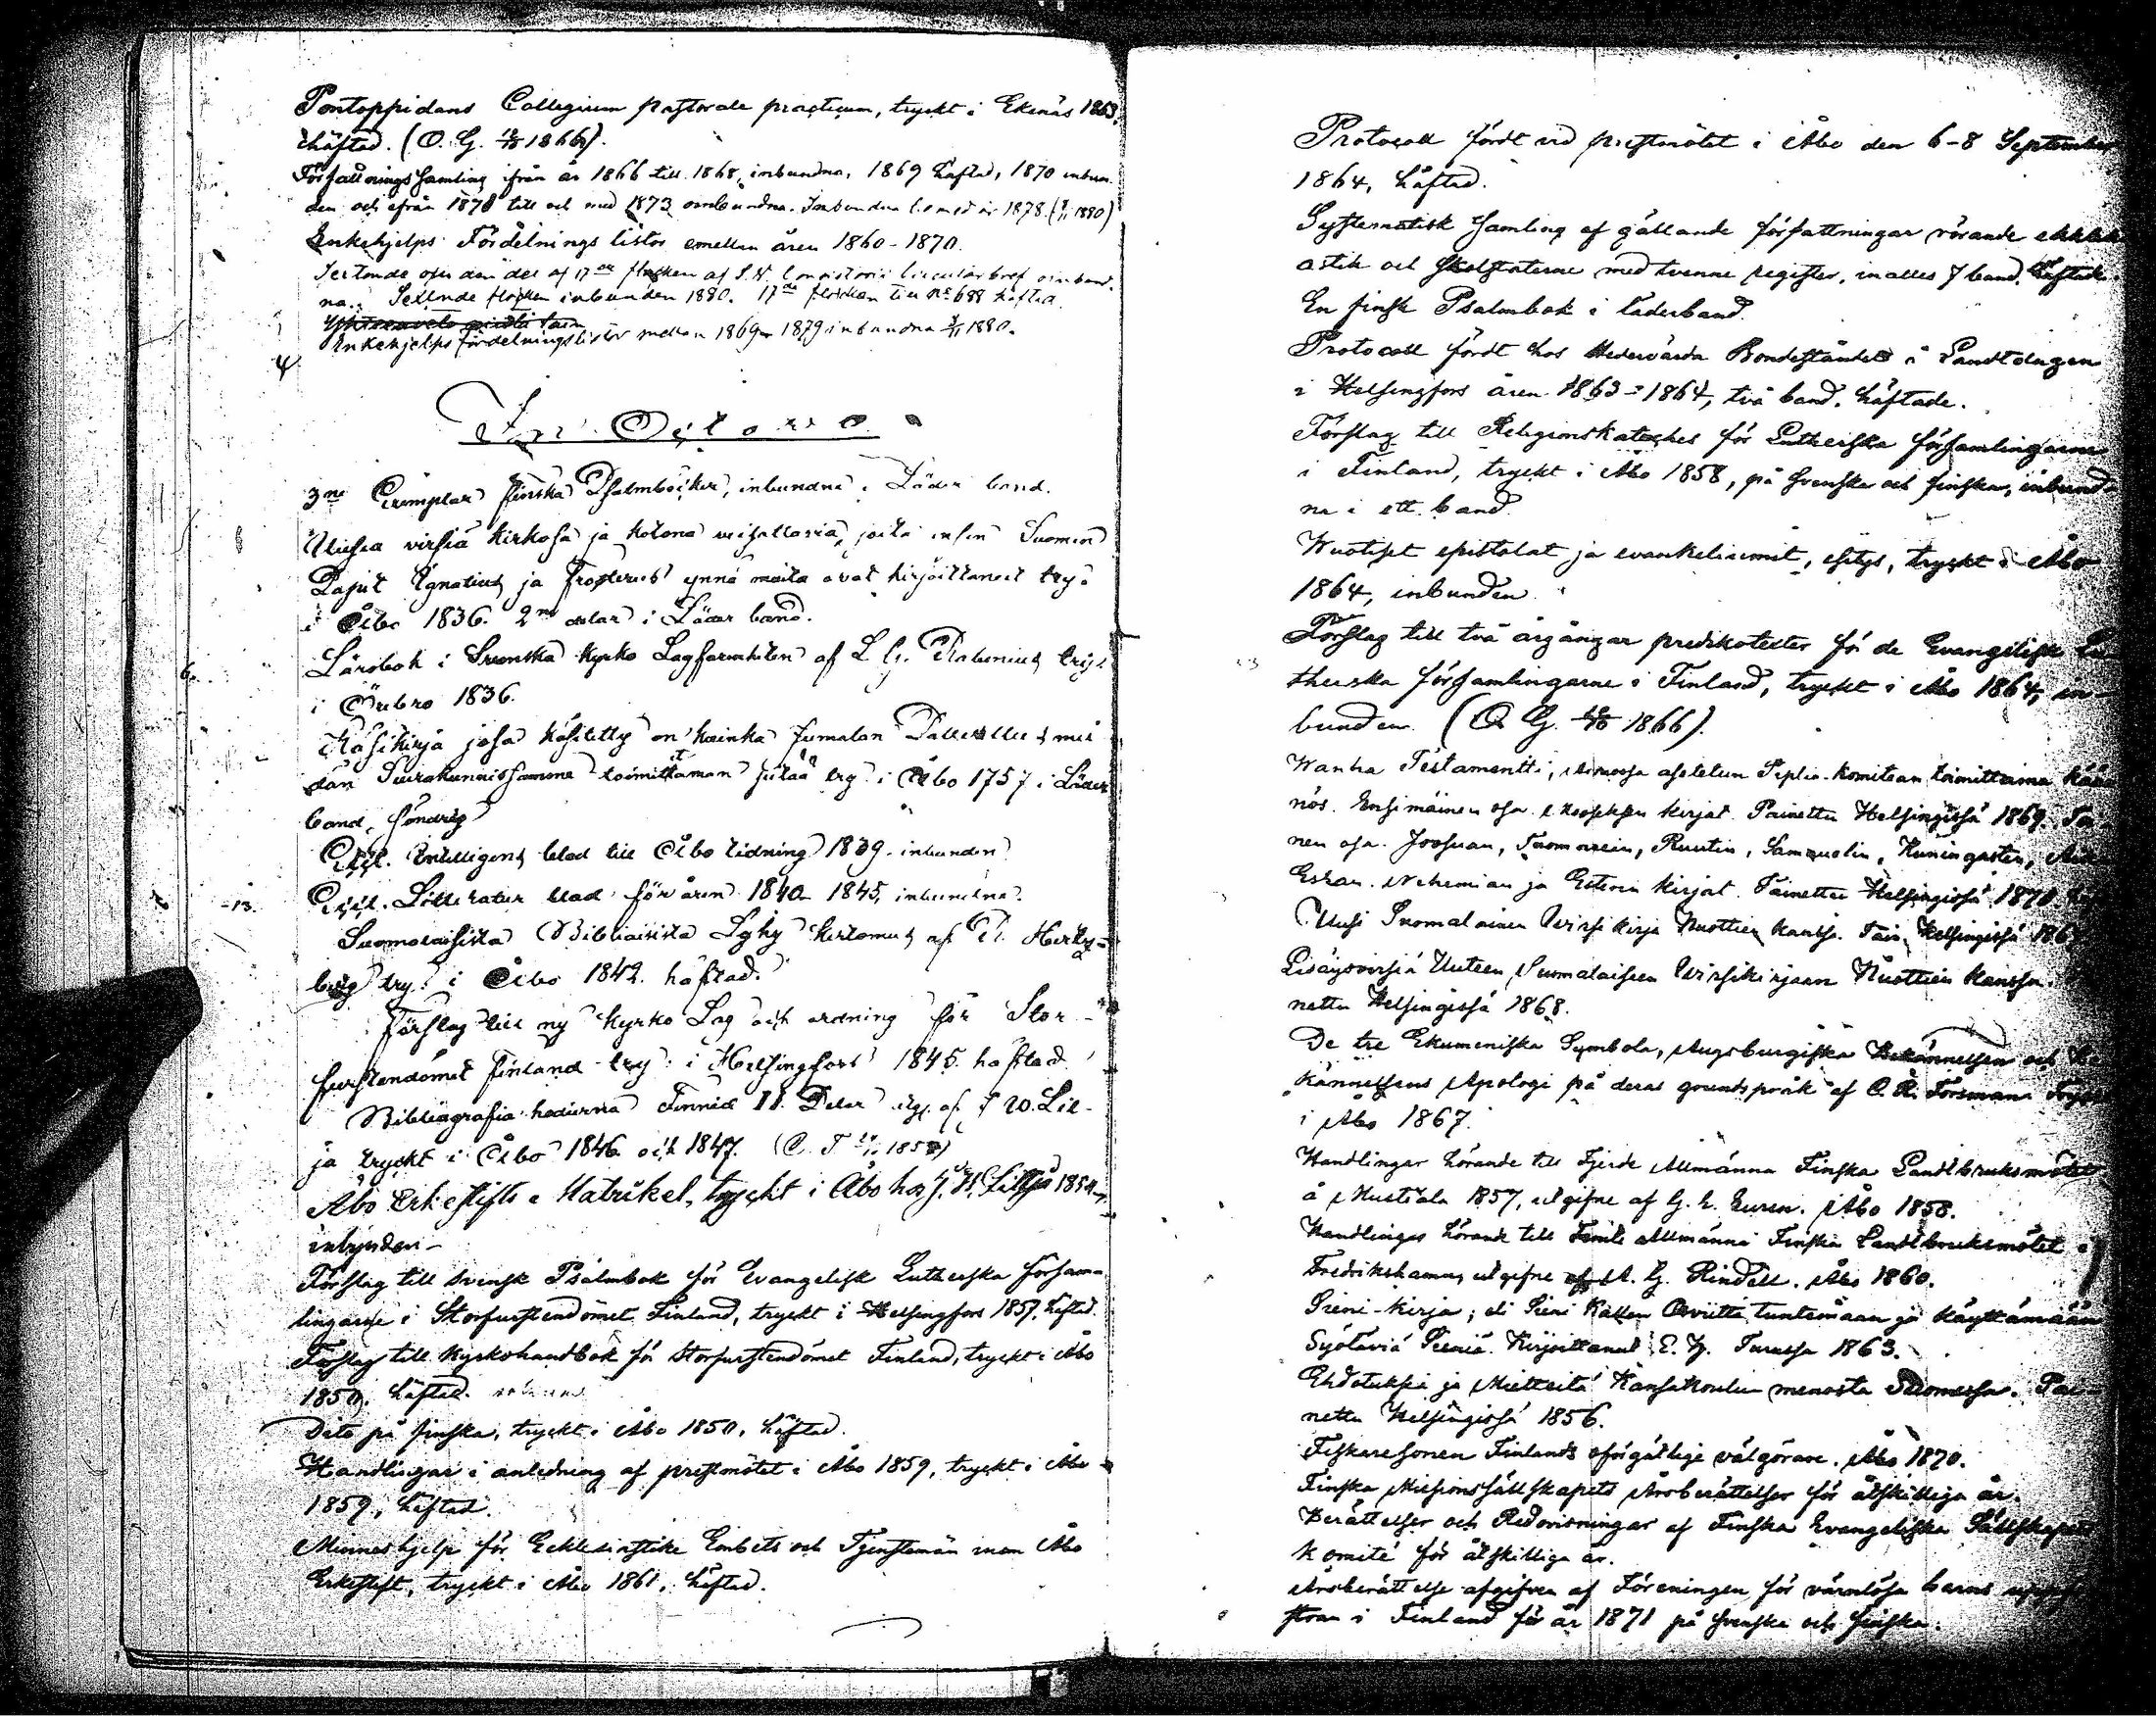 Pontoppidans Collegium pastorale practicum, tryckt i Ekenäs 1863,
häftad. (O. G. 18/10 1866).
Författnings Samling ifrån år 1866 till 1868, inbundna, 1869 häftad, 1870 inbun-
den och ifrån 1870 till och med 1873 oinbundna. Inbunden t.o.med år 1878. 1880)
Enkehjelps Fördelnings listor emellan åren 1860-1870.
Sextonde och den del af 17de flocken af Consistorii Circulärbref oinbund-
na. flocken inbunden 1880. 17de flocken till No 688 häftad.
Enkehjelps fördelningslistor mellan 1869 1879 inbundna 1880.
In Octavo
3ne Exemplar finska Psalmböcker, inbundne i Läder band.
Uusia virsiä kirkosa ja kotona veisattavia, joita Suomen
Papit Ignatius ja Frosterus ynnä muita ovat kirjoittaneet try:
i Åbo 1836. 2ne delar i Läder band.
Lärobok i Svenska Kyrko Lagfarenheten af L. G. Rabenius tryc
i Örebro 1836.
Käsikirja josa käsitetty on kuinka Jumalan Palvellus
dän Seurakunnissamme toimittaman pitää try i Åbo 1757 i Läder
band, söndrig
Intelligens blad till Åbo tidning 1839. inbunden
Litteratur blad för åren 1840-1845, inbundna.
Suomalaisista Bibliaisista Lyhy kertomus af Hertz-
berg try: i Åbo 1842. häftad.
Förslag till ny Kyrko Lag och ordning för Stor-
furstendömet Finland try: i Helsingfors 1845. häftad
Bibliografia hodierna Fennica II. Delar utg. af J. W. Lil-
ja tryckt i Åbo 1846 och 1847.
Åbo Erkestifts Matrikel, tryckt i Åbo hos J. W. Lillja 1854,
inbunden-
Förslag till Svensk Psalmbok för Evangelisk Lutherska försam-
lingarne i Storfurstendömet Finland, tryckt i Helsingfors 1857, häftad.
Förslag till Kyrkohandbok för Storfurstendömet Finland, tryckt i Åbo
1850, häftad.
Dito på finska, tryckt i Åbo 1850, häftad.
Handlingar i anledning af prestmötet i Åbo 1859, tryckt i Åbo
1859, häftad.
Minneshjelp för Ecklesiastike Embets och Tjenstemän inom Åbo
Erkestift, tryckt i Åbo 1861, häftad.
Protocoll fördt vid prestmötet i Åbo den 6-8 September
1864, häftad.
Systematisk Samling af gällande författningar rörande
astik och Skolstaterne med tvenne register, inalles 7 band. häftade.
En finsk Psalmbok i läderband.
Protocoll fördt hos Hedervärda Bondeståndet å Landtdagen
i Helsingfors åren 1863-1864, två band, häftade.
Förslag till Religionskateches för Lutherska församlingarne
i Finland, tryckt i Åbo 1858, på svenska och finska, inbund-
na i ett band
Wuotiset epistolat ja evankeliumit, esitys, tryckt i Åbo
1864, inbunden
Förslag till två årgångar predikotexter för de Evangelisk Lu-
therska församlingarne i Finland, tryckt i Åbo 1864, in-
bunden. (O. G. 18/10 1866).
Wanha Testamentti, Armossa asetetun Piplia-Komitean toimittama Kään
nös. Ensimäinen osa. Mooseksen kirjat. Painettu Helsingissä 1869. To
nen osa. Joosuan, Tuomarein, Ruutin, Samuelin, Kuningasten,
Esran. Nehemian ja Esterin kirjat. Painettu Helsingissä 1870
Uusi Suomalainen Virsikirja Nuottien kanssa. Pain. Helsingissä
Lisäysvirsiä Uuteen Suomalaiseen Virsikirjaan Nuottien kanssa.
nettu Helsingissä 1868.
De tre Ekumeniska Symbola, Augsburgiska Bekännelsen och
kännelsens Apologi på deras grundspråk af O. R. Forsman
i Åbo 1867.
Handlingar hörande till Fjerde Allmänna Finska Landtbruksmötet
å Mustiala 1857, utgifne af G. E. Euren. Åbo 1858.
Handlingar hörande till Femte Allmänna Finska Landtbruksmötet i
Fredrikshamn, utgifne af A. G. Rindell. Åbo 1860.
Sieni-kirja; eli Sieni Kallen Osviitta tuntemaan ja käyttämään
Syötäviä Sieniä. Kirjoittanut E. Turussa 1863.
Ehdotuksia ja Mietteitä Kansakoulun menosta Suomessa. Pai-
nettu Helsingissä 1856.
Fiskaresonen Finlands oförgätlige välgörare. Åbo 1870.
Finska Missionssällskapets Årsberättelser för åtskilliga år.
Berättelser och Redovisningar af Finska Evangeliska Sällskapets
Komité för åtskilliga år.
Årsberättelse afgifven af Föreningen för värnlösa barns
stran i Finland för år 1871 på svenska och finska.